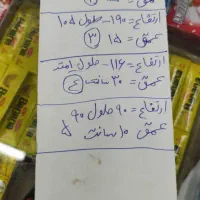 ارتفاع = ۱۹۰ - طول ۱۰۵
عمق = ۱۵ ۳
ارتفاع = ۱۱۶ - طول ۱متر
عمق = ۳۰ سانت ۴
ارتفاع = ۹۰ طول ۹۰
عمق ۱۰ سانت